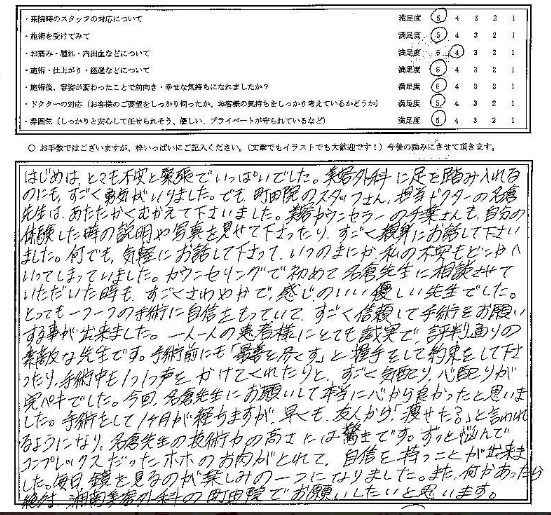 ・来院時のスタッフの対応について 満足度 5 4 3 2 1
・施術を受けてみて 満足度 5 4 3 2 1
・お痛み・腫れ・内出血などについて 満足度 5 4 3 2 1
・施術・仕上がり・経過などについて 満足度 5 4 3 2 1
・施術後、容姿が変わったことで前向き・幸せな気持ちになれましたか？ 満足度 5 4 3 2 1
・ドクターの対応（お客様のご要望をしっかり伺ったか、お客様の気持ちをしっかり考えているかどうか） 満足度 5 4 3 2 1
・雰囲気（しっかりと安心して任せられそう、優しい、プライベートが守られているなど） 満足度 5 4 3 2 1
○ お手数ではございますが、枠いっぱいにご記入ください。（文章でもイラストでも大歓迎です！）今後の励みにさせて頂きます。
はじめは、とても不安と緊張でいっぱいでした。美容外科に足を踏み入れる
のにも、すごく勇気がいりました。でも、町田院のスタッフさん、担当ドクターの名倉
先生は、あたたかくむかえて下さいました。美容カウンセラーの千葉さんも、自分の
体験した時の説明や写真を見せて下さったり、すごく親身にお話して下さい
ました。何でも、気軽にお話して下さって、いつのまにか私の不安もどこかへ
いってしまっていました。カウンセリングで初めて名倉先生に相談させて
いただいた時も、すごくさわやかで、感じのいい優しい先生でした。
とっても一つ一つの手術に自信をもっていて、すごく信頼して手術をお願い
する事が出来ました。一人一人の患者様にとても誠実で、評判通りの
素敵な先生です。手術前にも「最善を尽くす」と握手をして約束をして下さ
ったり、手術中も1つ1つ声をかけてくれたりと、すごく気配り、心配りが
完ペキでした。今回、名倉先生にお願いして本当に心から良かったと思いま
した。手術をして1ヶ月が経ちますが、早くも、友人から「痩せた？」と言われ
るようになり、名倉先生の技術力の高さには驚きです。ずっと悩んで
コンプレックスだったホホのお肉がとれて、自信を持つことが出来ま
した。毎日、鏡を見るのが楽しみの一つになりました。また、何かあったら
絶対、湘南美容外科の町田院でお願いしたいと思います。